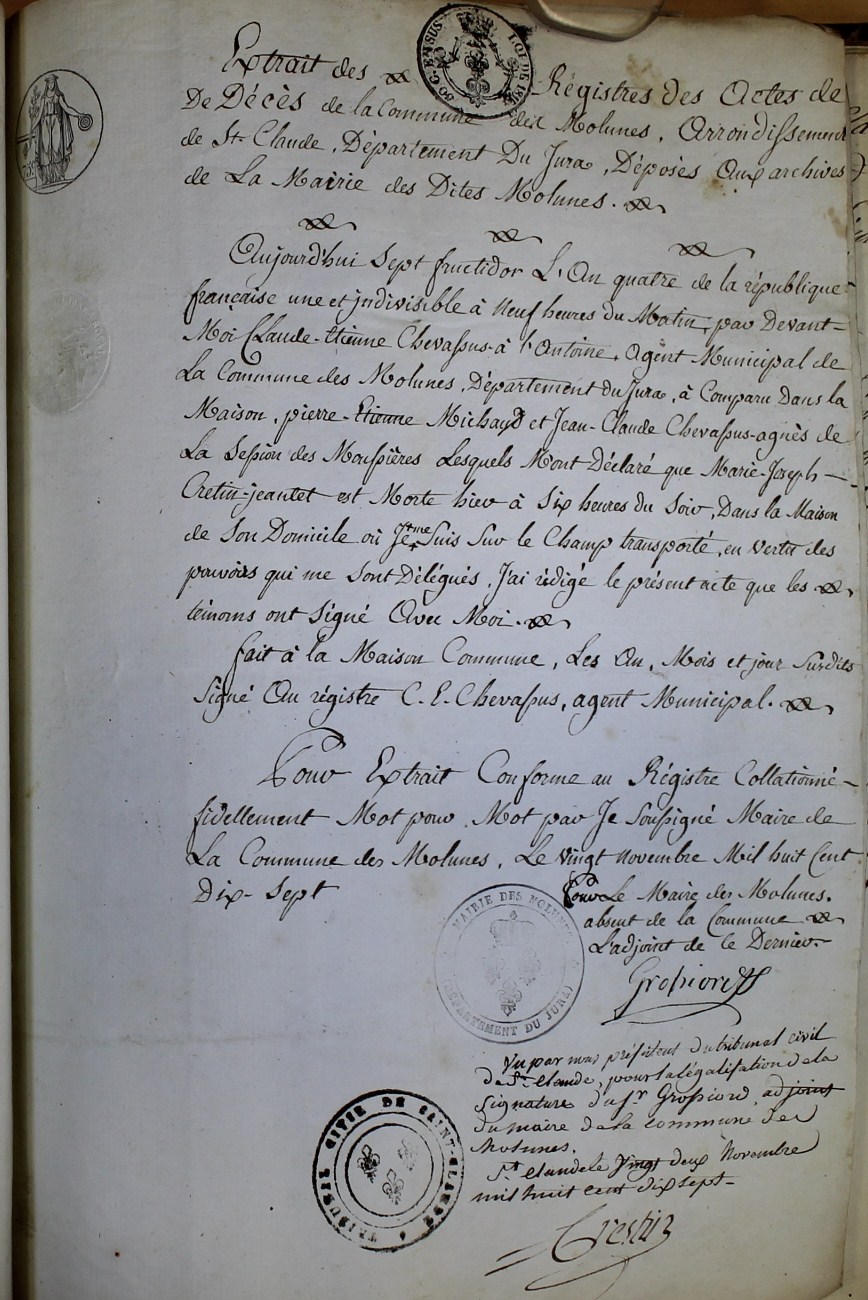 Extrait des Régistres des Actes de
De Décès de la Commune des Molunes, Arrondissement
de St. Claude, Département Du Jura, Déposés Aux archives
de La Mairie des Dites Molunes.
Aujourd'hui Sept fructidor L'An quatre de la république
française une et jndivisible à Neuf heures du Matin, par Devant
Moi Claude-Etienne Chevassus-à l'Antoine, Agent Municipal de
La Commune des Molunes, Département du Jura, à Comparu Dans la
Maison, pierre-Etienne Michaud et Jean-Claude Chevassus-agnès de
La Session des Moussières Lesquels M'ont Déclaré que Marie-Joseph
Cretin-jeantet est Morte hier à Six heures du Soir, Dans la Maison
de Son Domicile où Je me Suis Sur le Champ transporté, en vertu des
pouvoirs qui me Sont Délégués, J'ai rédigé le présent acte que les
témoins ont Signé Avec Moi.
fait à la Maison Commune, Les An, Mois et jour Susdits
Signé Au régistre C. E. Chevassus, agent Municipal.
Pour Extrait Conforme au Régistre Collationné
fidellement Mot pour Mot par Je Soussigné Maire de
La Commune des Molunes, Le vingt novembre Mil huit Cent
Dix-Sept
Pour Le Maire des Molunes.
absent de la Commune
L'adjoint de ce Dernier
MAIRIE DES MOLUNES
(DÉPARTEMENT DU JURA)
Grossiord
Vu par nous président du tribunal civil
de St. Claude, pour la légalisation de la
signature du sr. Grossiord, adjoint
du maire de la commune des
Molunes.
St. Claude le vingt deux Novembre
mil huit cent dix sept
TRIBUNAL CIVIL DE SAINT-CLAUDE
Crestin